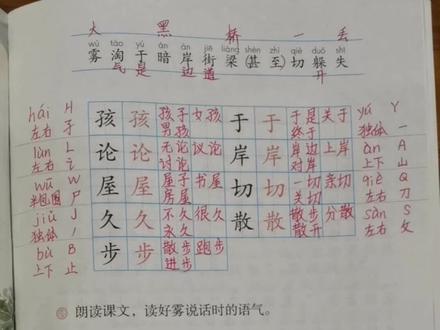 大 黑 桥 一 丢
wù táo yú àn àn jiē liáng shèn zhì qiè duǒ shī
雾 淘 于 暗 岸 街 梁 (甚 至) 切 躲 失
气 是 边 道 开
hái H 左右 子 孩 孩 孩子 女孩 男孩 于 于 于是 关于 终于 yú Y 独体 一
lùn L 左右 讠 论 论 无论 议论 讨论 岸 岸 岸边 上岸 对岸 àn A 上下 山
wū W 半包围 尸 屋 屋 屋子 书屋 房屋 切 切 一切 亲切 关切 qiè Q 左右 刀
jiǔ J 独体 丿 久 久 不久 很久 永久 散 散 散步 分散 散开 sàn S 左右 攵
bù B 上下 止 步 步 散步 跑步 进步
朗读课文，读好雾说话时的语气。